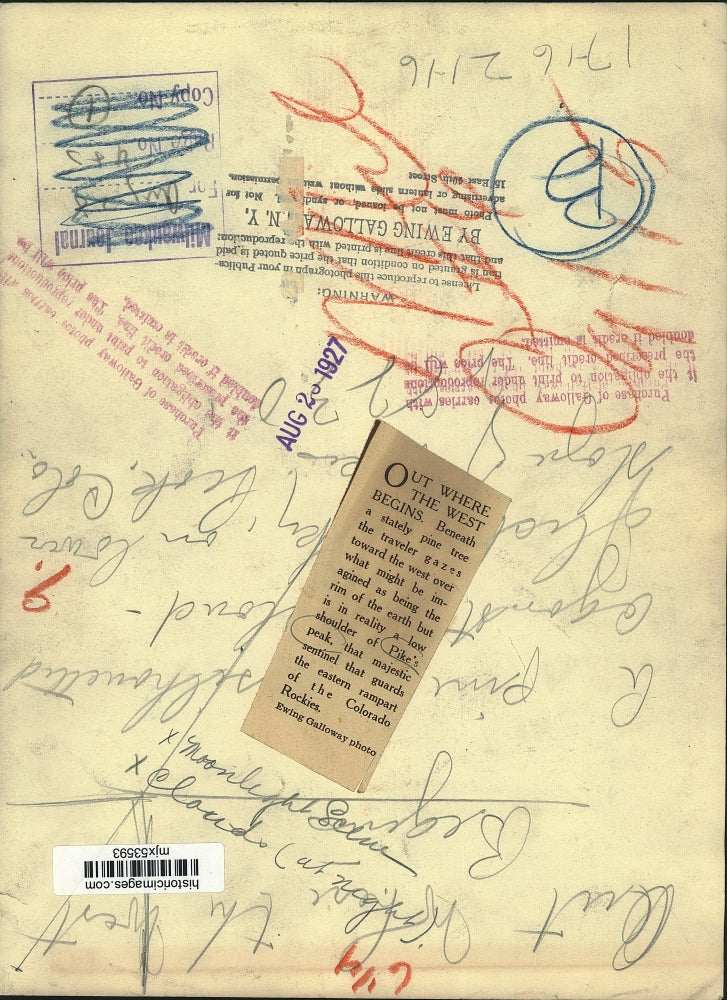 OUT WHERE
THE WEST
BEGINS. Beneath
a stately pine tree
the traveler gazes
toward the west over
what might be im-
agined as being the
rim of the earth but
is in reality a low
shoulder of Pike's
peak, that majestic
sentinel that guards
the eastern rampart
of the Colorado
Rockies.
Ewing Galloway photo
AUG 23 1927
WARNING:
License to reproduce this photograph in your publica-
tion is granted on condition that the price quoted is paid
and that this credit line is printed with the reproduction:
BY EWING GALLOWAY, N. Y.
Photo must not be loaned, or used for
advertising or lantern slide without permission.
15 East 40th Street
Purchase of Galloway photos carries with
it the obligation to print under reproductions
the prescribed credit line. The price will be
doubled if credit is omitted.
Purchase of Galloway photos carries with
it the obligation to print under reproductions
the prescribed credit line. The price will be
doubled if credit is omitted.
Milwaukee Journal
For
Page No
Copy No 1
1716 2116
Out
the West
Begins
A pine silhouetted
against cloud -
on lower
slope Pike's Peak, Colo.
historicimages.com
mjx53593